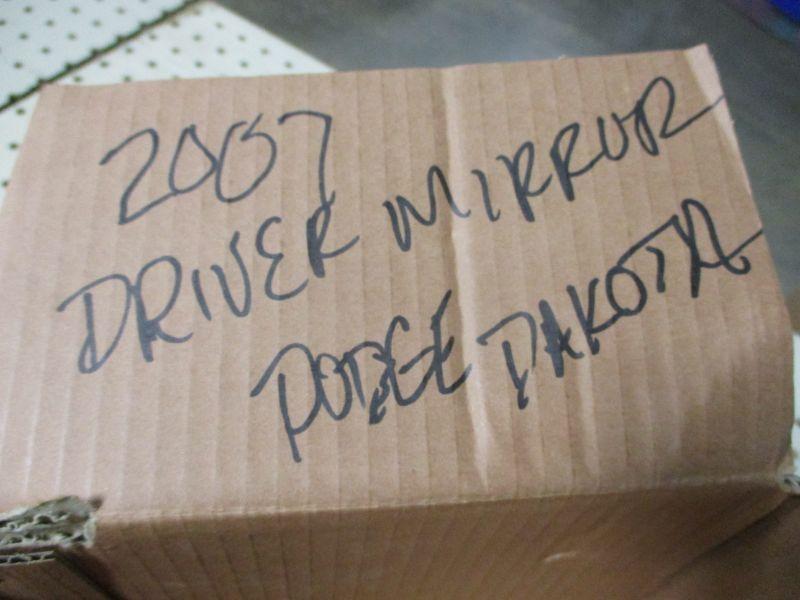 2007
DRIVER MIRROR
DODGE DAKOTA